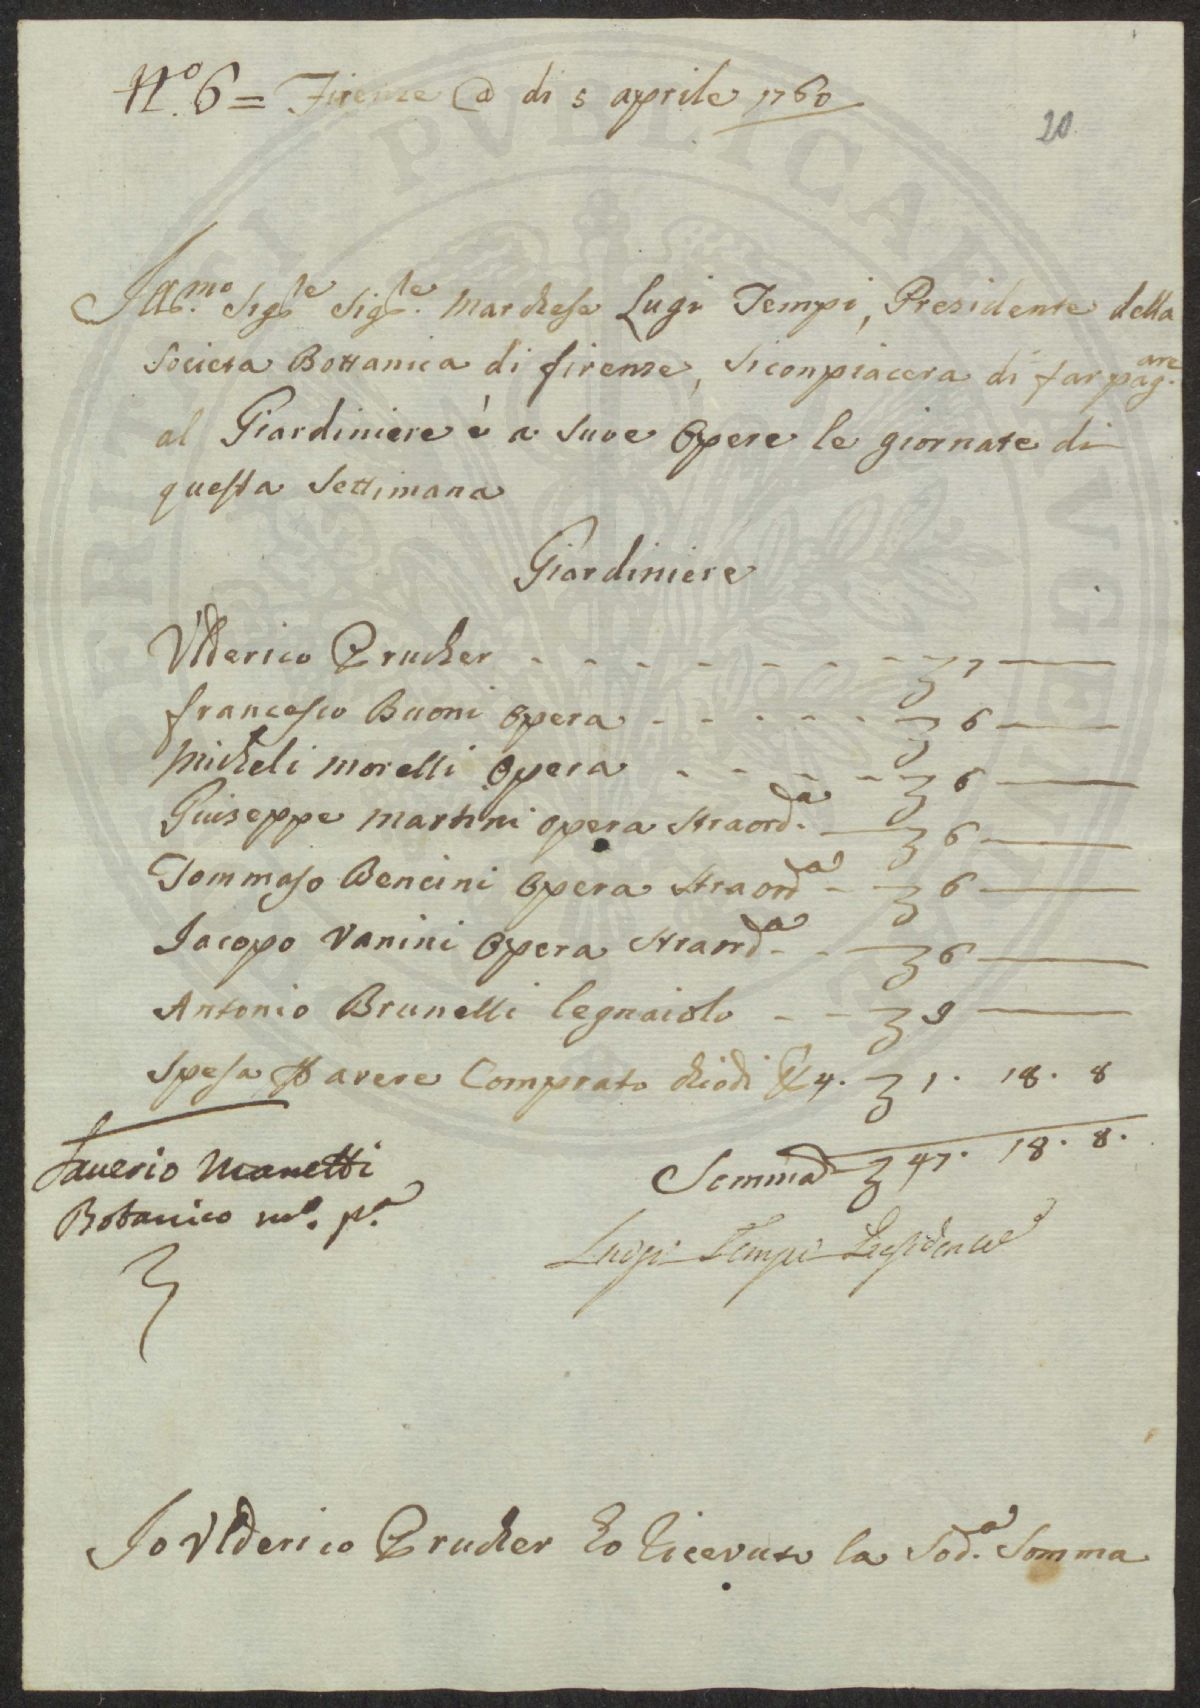 N.o 6 = Firenze @ di 5 aprile 1760
20
Ill.mo Sig.re Sig.re Marchese Lugi Tempi, Presidente della
Societa Bottanica di firenze, si conpiacera di far pag.are
al Giardiniere è a sue Opere le giornate di
questa Settimana
Giardiniere
Vlderico Prucher - - - - - - - 7 —
francesco Buoni opera - - - - - 6 —
Micheli Morelli Opera - - - - 6 —
Giuseppe Martini opera Straord.a — 6 —
Tommaso Bencini Opera Straord.a - 6 —
Jacopo Vanini Opera Straord.a - - 6 —
Antonio Brunelli legnaiolo - - 9 —
Spesa avere Comprato chiodi 4. 1. 18. 8
Somma 47. 18. 8.
Saverio Manetti
Botanico m.o p.a
Luigi Tempi Presidente
Io Vlderico Prucher ho ricevuto la Sod.a Somma
PVBLICAE